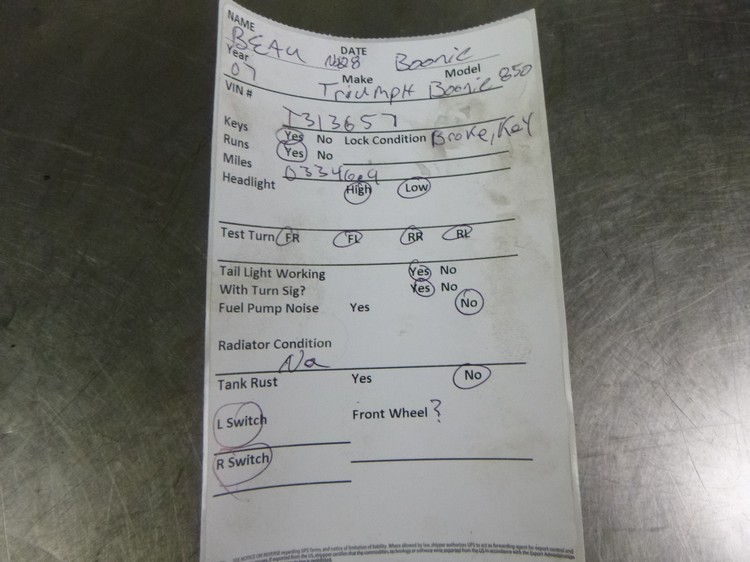 NAME BEAU DATE Boonie
Year 07 Make Triumph Model Boonie 850
VIN # T313657
Keys Yes No Lock Condition Broke, Key
Runs Yes No
Miles
Headlight High Low
Test Turn FR FL RR RL
Tail Light Working Yes No
With Turn Sig? Yes No
Fuel Pump Noise Yes No
Radiator Condition
Na
Tank Rust Yes No
L Switch Front Wheel ?
R Switch